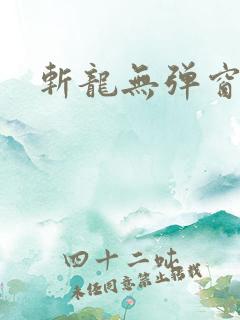 斬龍無弹窗
四十二
未经同意禁止转载